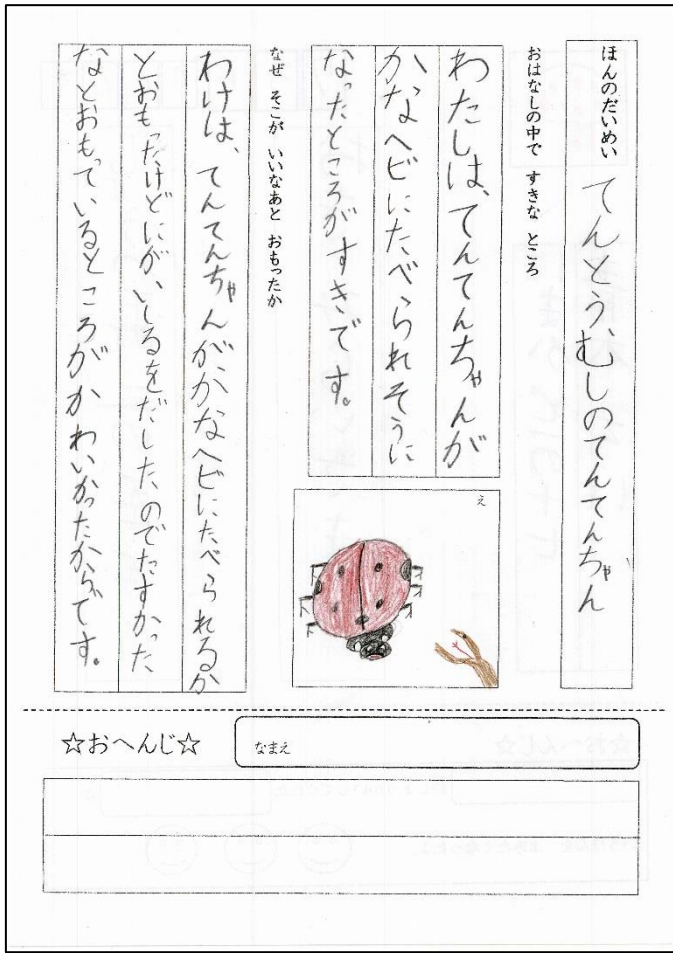 ほんのだいめい てんとうむしのてんてんちゃん
おはなしの中で すきな ところ
わたしは、てんてんちゃんが
かなヘビにたべられそうに
なったところがすきです。
え
なぜ そこが いいなあと おもったか
わけは、てんてんちゃんがかなヘビにたべられるか
とおもったけどにがいしるをだしたのでたすかった
なとおもっているところがかわいかったからです。
☆おへんじ☆
なまえ